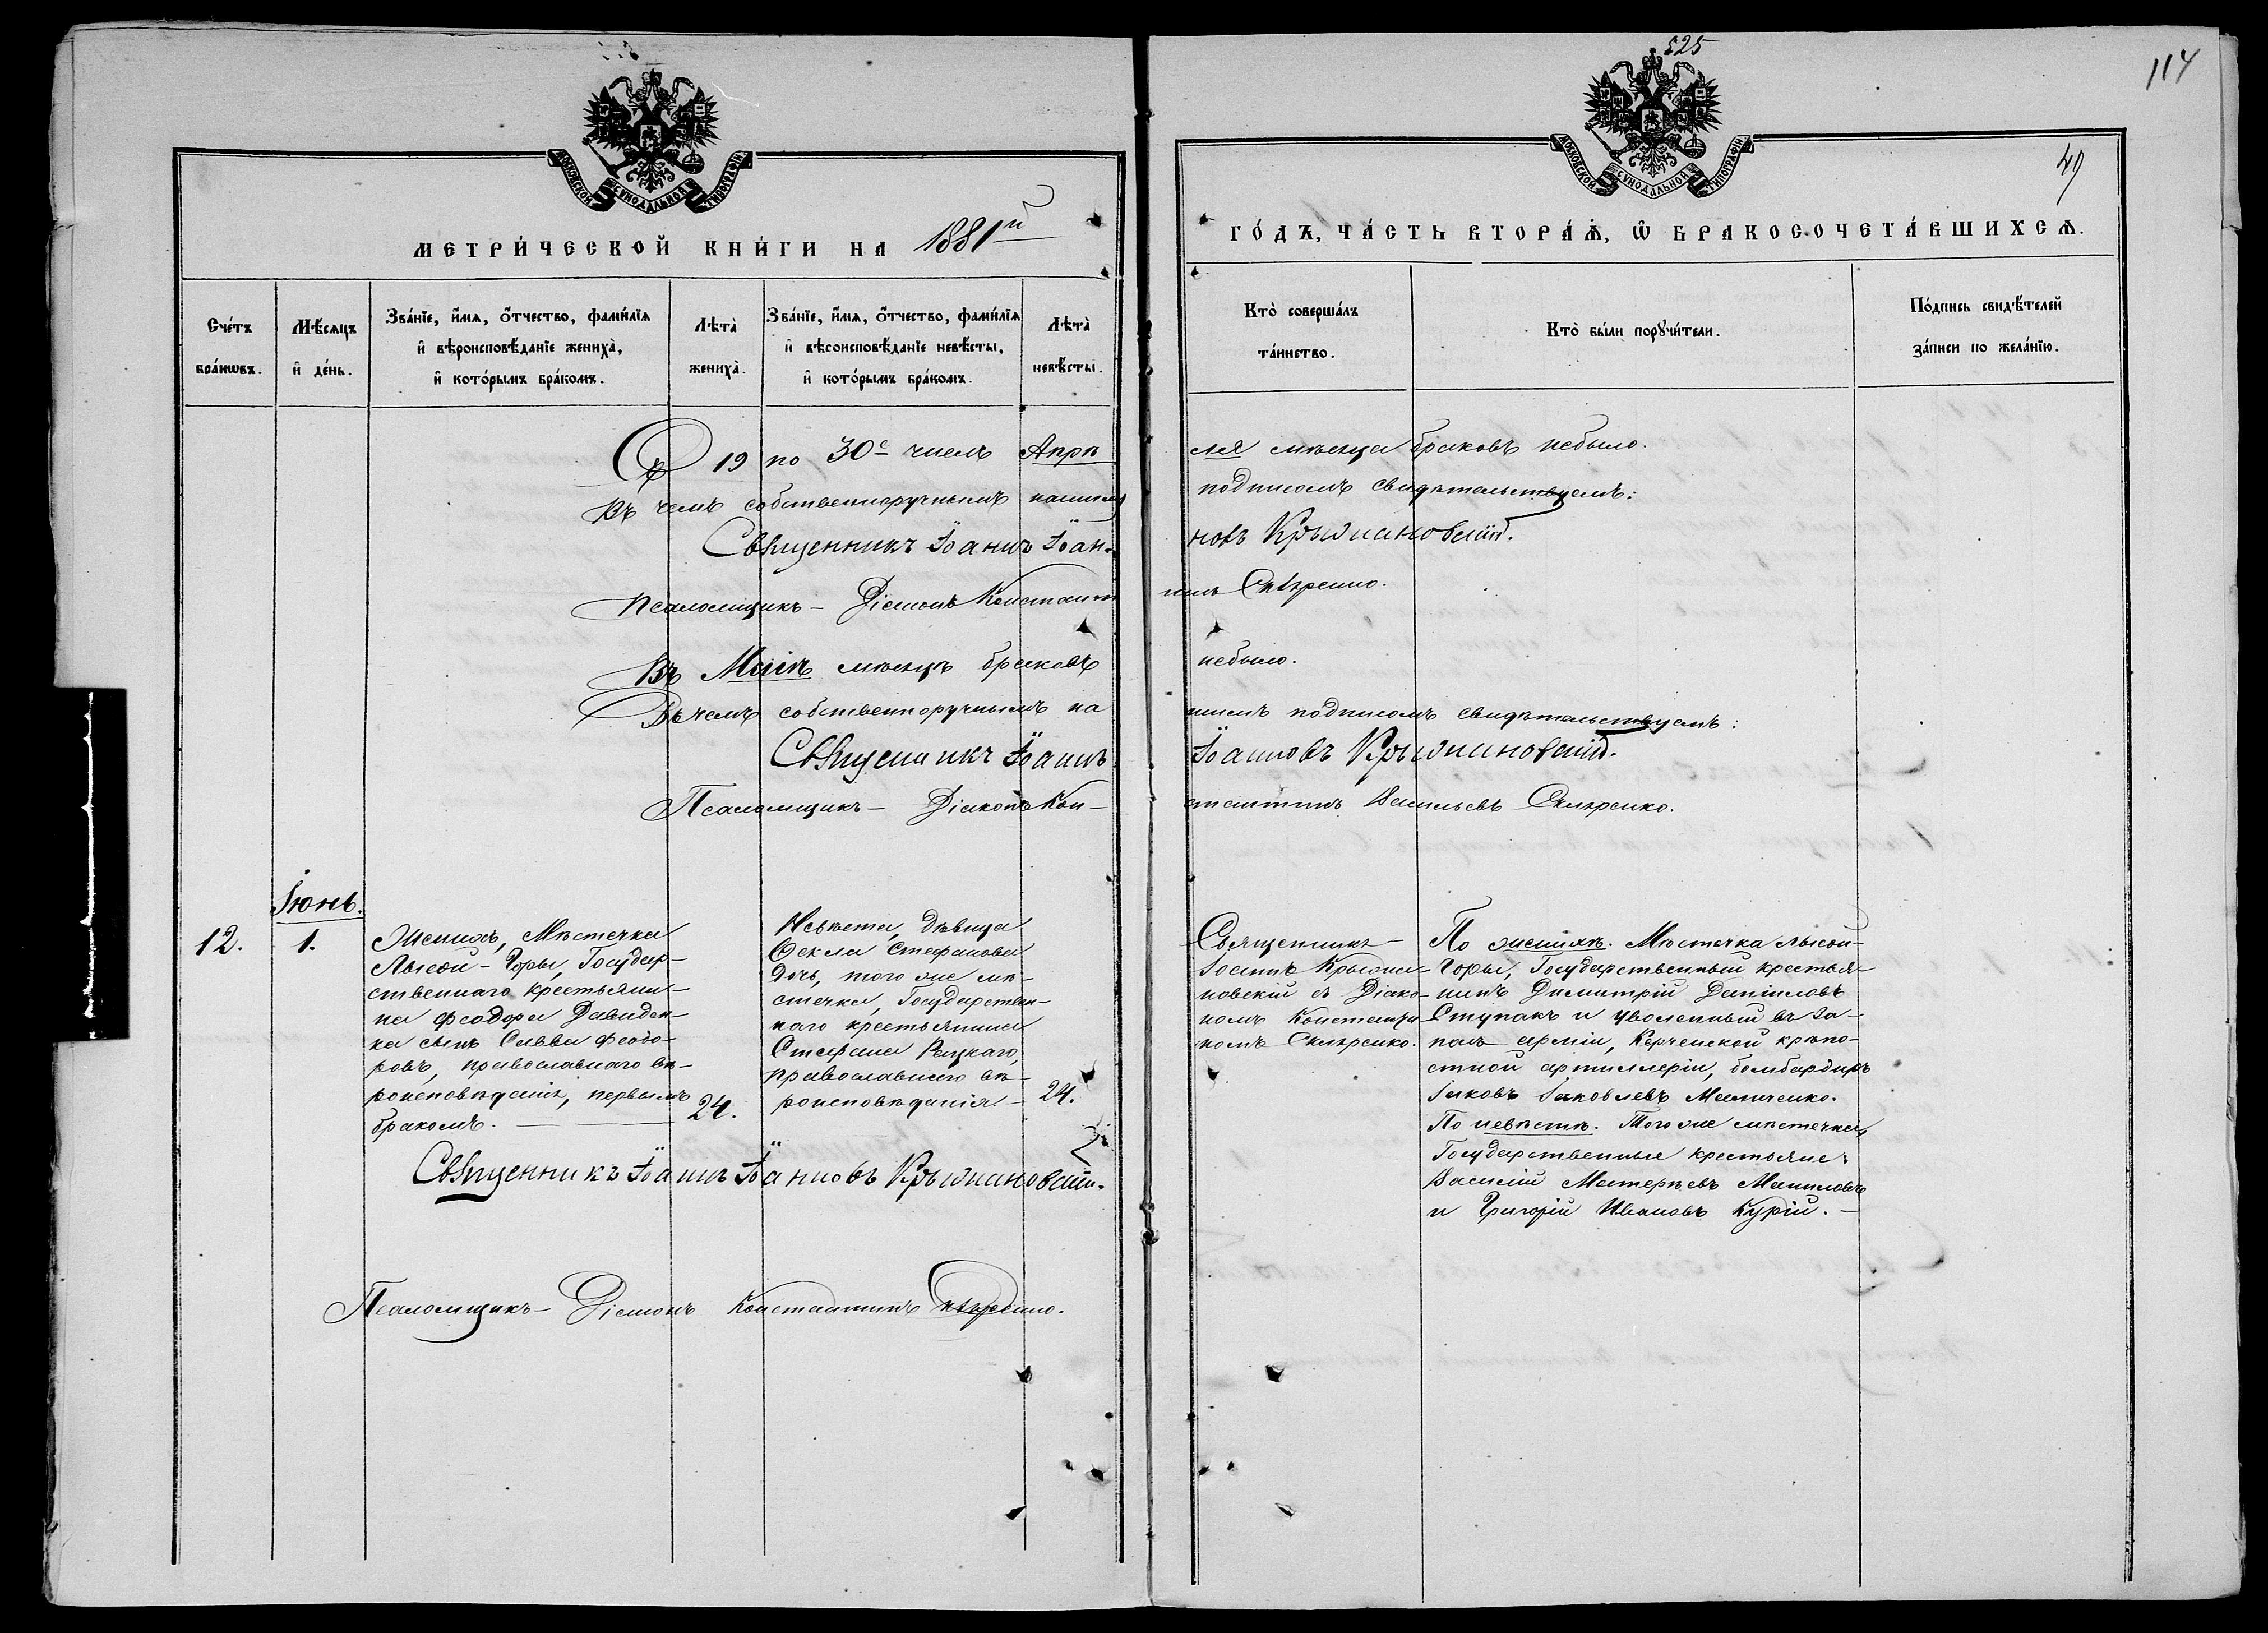 525
114
49
МОСКОВСКОЙ СѴНОДАЛЬНОЙ ТИПОГРАФІИ
МОСКОВСКОЙ СѴНОДАЛЬНОЙ ТИПОГРАФІИ
МЕТРИ́ЧЕСКОЙ КНИ́ГИ НА 1881й
ГО́ДЪ, ЧА́СТЬ ВТОРА́Ѧ, Ѡ҆ БРАКОСОЧЕТА́ВШИХСѦ.
Сче́тъ бра́кѡвъ.
Мѣ́сѧцъ и҆ де́нь.
Зва́нїе, и҆́мѧ, ѻ҆́тчество, фами́лїѧ
и҆ вѣроисповѣ́данїе жениха̀,
и҆ кото́рымъ бра́комъ.
Лѣта̀ жениха̀.
Зва́нїе, и҆́мѧ, ѻ҆́тчество, фами́лїѧ
и҆ вѣсоисповѣ́данїе невѣ́сты,
и҆ кото́рымъ бра́комъ.
Лѣта̀ невѣ́сты.
Кто̀ соверша́лъ
та́инство.
Кто̀ бы́ли порꙋчи́тели.
По́дпись свидѣ́телей
за́писи по жела́нїю.
Съ 19 по 30е числъ Апрѣля мѣсяца браковъ небыло.
Въ чемъ собственноручнымъ нашимъ подписомъ свидѣтельствуемъ:
Священникъ Іоаннъ Іоанновъ Крыжановскій.
Псаломщикъ - Діаконъ Константинъ Скляренко.
Въ Маѣ мѣсяцѣ браковъ небыло.
Въ чемъ собственноручнымъ нашимъ подписомъ свидѣтельствуемъ:
Священникъ Іоаннъ Іоанновъ Крыжановскій.
Псаломщикъ - Діаконъ Константинъ Васильевъ Скляренко.
Іюнь.
12. 1.
Женихъ, Мѣстечка
Лысой-Горы, Государ-
ственнаго крестьяни-
на Феодора Давиден-
ка сынъ Савва Феодо-
ровъ, православнаго вѣ-
роисповѣданія, первымъ
бракомъ.
24.
Невѣста, дѣвица
Ѳекла Стефанова
дочь, того же мѣ-
стечка, Государствен-
наго крестьянина
Стефана Рацкаго,
православнаго вѣ-
роисповѣданія
24.
Священникъ
Іоаннъ Крыжа-
новскій съ Діако-
номъ Константи-
номъ Скляренко.
По женихѣ. Мѣстечка Лысой-
Горы, Государственный крестья-
нинъ Димитрій Даніиловъ
Ступакъ и уволенный въ за-
пасъ арміи, Керченской крѣпо-
стной артиллеріи, бомбардиръ
Іаковъ Іаковлевъ Мамченко.
По невѣстѣ. Того же мѣстечка,
Государственные крестьяне:
Василій Матѳеевъ
и Григорій Ивановъ Курій.
Священникъ Іоаннъ Іоанновъ Крыжановскій.
Псаломщикъ - Діаконъ Константинъ Скляренко.